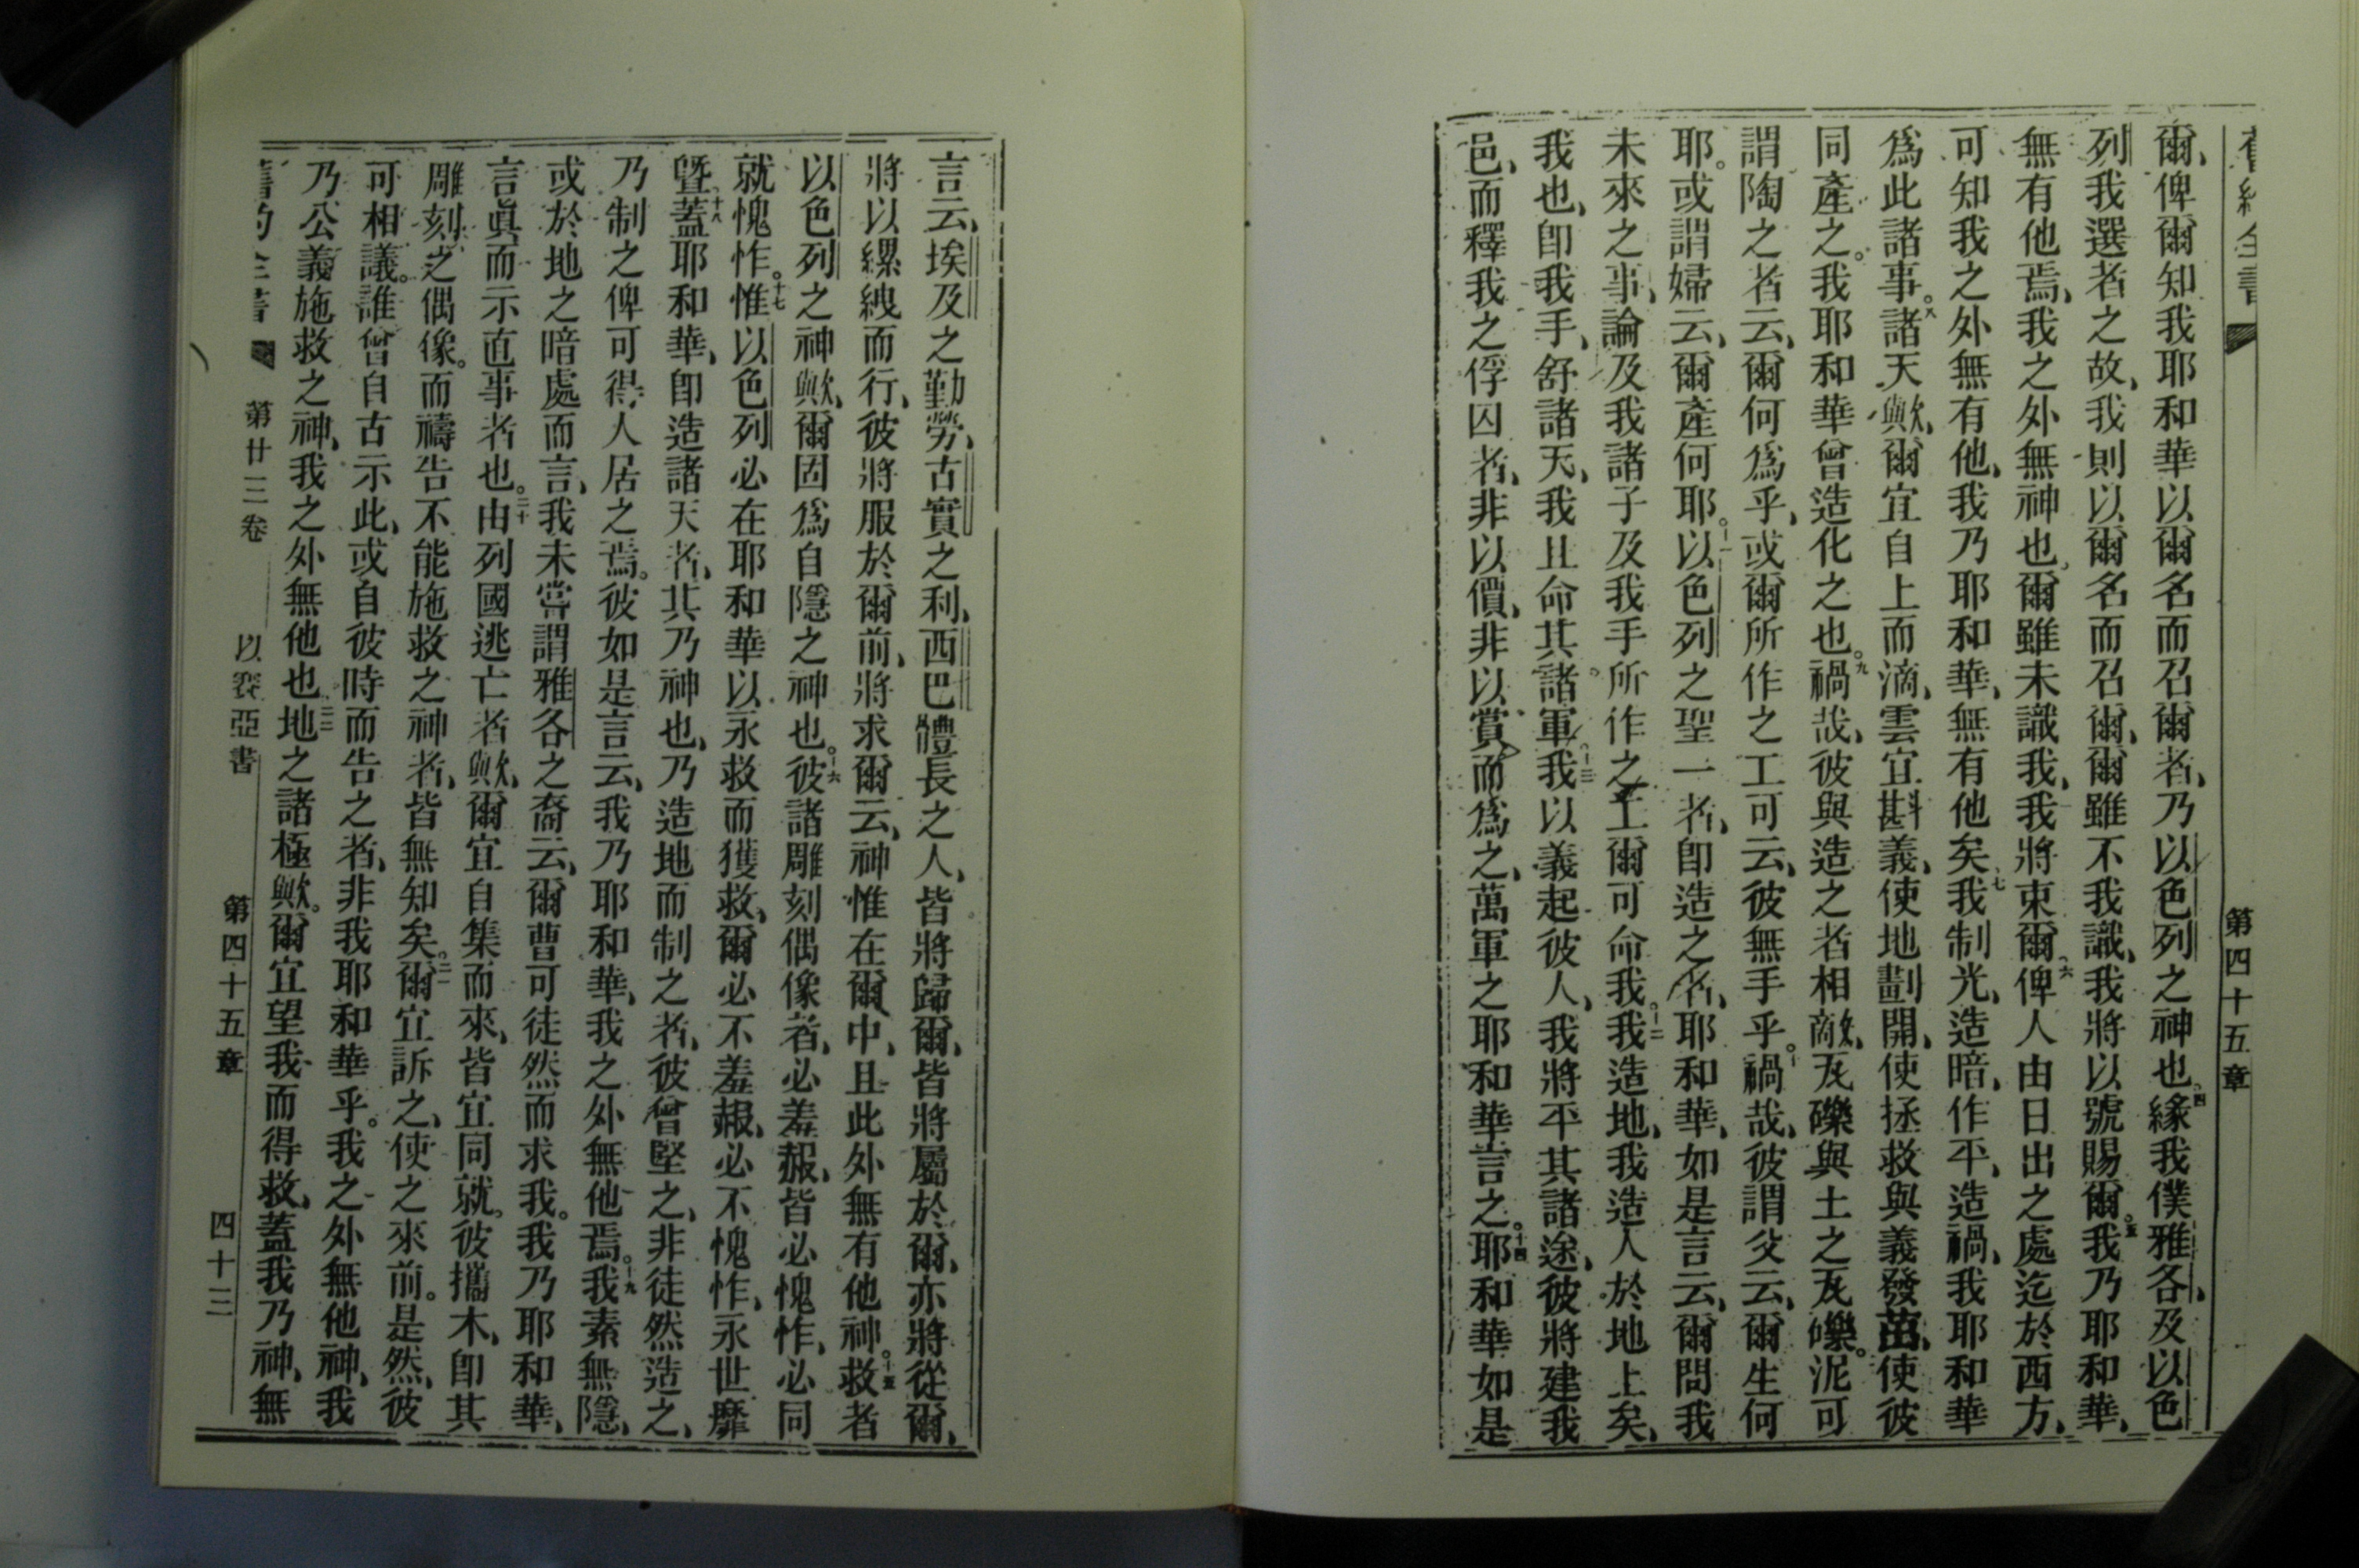 舊約全書
第四十五章
爾、俾爾知我耶和華以爾名而召爾者、乃以色列之神也。四緣我僕雅各、及以色
列我選者之故、我則以爾名而召爾、爾雖不我識、我將以號賜爾。五我乃耶和華、
無有他焉、我之外無神也、爾雖未識我、我將束爾、六俾人由日出之處迄於西方、
可知我之外無有他、我乃耶和華、無有他矣、七我制光、造暗、作平、造禍、我耶和華
爲此諸事。八諸天歟、爾宜自上而滴、雲宜斟義、使地劃開、使拯救與義發苗、使彼
同產之。我耶和華曾造化之也。九禍哉、彼與造之者相敵、瓦礫與土之瓦礫。泥可
謂陶之者云、爾何爲乎、或爾所作之工可云、彼無手乎。十禍哉、彼謂父云、爾生何
耶。或謂婦云、爾產何耶。十一以色列之聖一者、卽造之者、耶和華、如是言云、爾問我
未來之事、論及我諸子及我手所作之工爾可命我。十二我造地、我造人於地上矣、
我也、卽我手、舒諸天、我且命其諸軍。十三我以義起彼人、我將平其諸途、彼將建我
邑、而釋我之俘囚者、非以價、非以賞、而爲之、萬軍之耶和華言之。十四耶和華如是
言云、埃及之勤勞、古實之利、西巴體長之人、皆將歸爾、皆將屬於爾、亦將從爾、
將以縲絏而行、彼將服於爾前、將求爾云、神惟在爾中、且此外無有他神。十五救者
以色列之神歟、爾固爲自隱之神也。十六彼諸雕刻偶像者、必羞赧、皆必愧怍、必同
就愧怍。十七惟以色列必在耶和華以永救而獲救、爾必不羞赧、必不愧怍、永世靡
曁。十八蓋耶和華、卽造諸天者、其乃神也、乃造地而制之者、彼曾堅之、非徒然造之、
乃制之俾可得人居之焉。彼如是言云、我乃耶和華、我之外無他焉。十九我素無隱、
或於地之暗處而言、我未嘗謂雅各之裔云、爾曹可徒然而求我。我乃耶和華、
言眞而示直事者也。二十由列國逃亡者歟、爾宜自集而來、皆宜同就。彼攜木、卽其
雕刻之偶像。而禱告不能施救之神者、皆無知矣。二一爾宜訴之、使之來前。是然、彼
可相議。誰曾自古示此、或自彼時而告之者、非我耶和華乎。我之外無他神、我
乃公義施救之神、我之外無他也、二二地之諸極歟。爾宜望我而得救、蓋我乃神、無
舊約全書
第廿三卷
以賽亞書
第四十五章
四十三